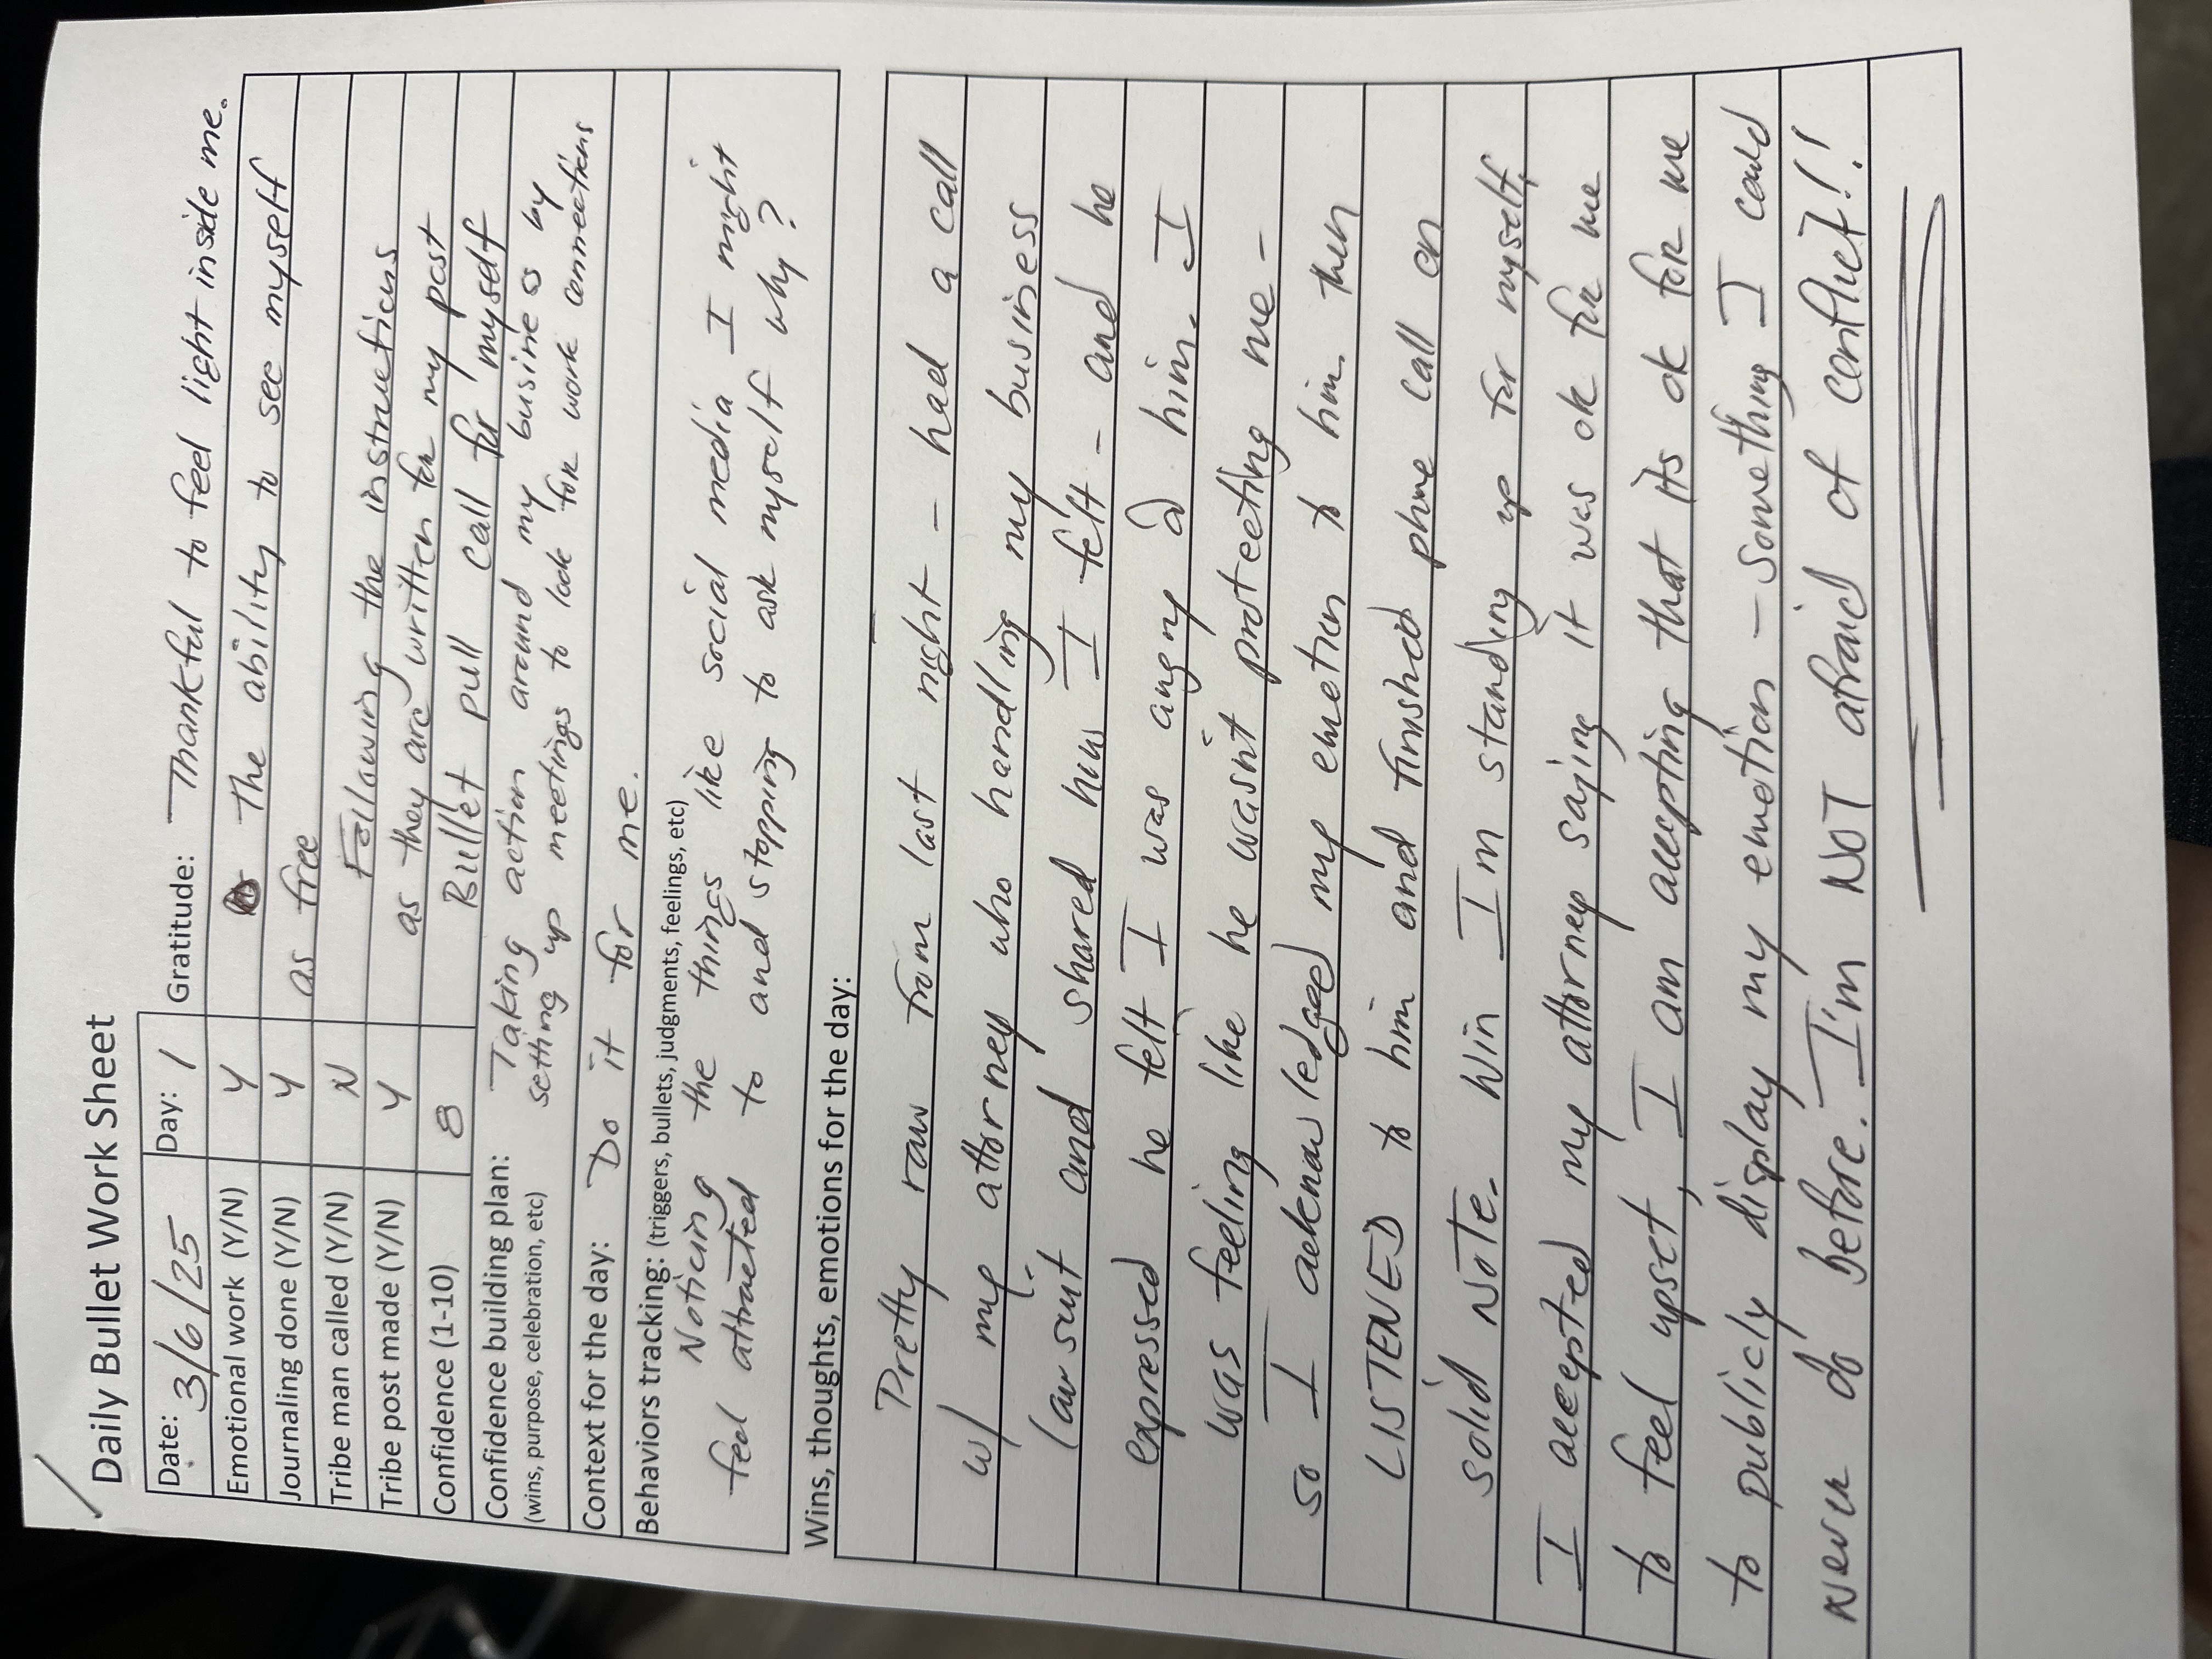 Daily Bullet Work Sheet
Date: 3/6/25 Day: 1 Gratitude: Thankful to feel light inside me.
Emotional work (Y/N) Y The ability to see myself
Journaling done (Y/N) Y as free
Tribe man called (Y/N) N Following the instructions
Tribe post made (Y/N) Y as they are written for my post
Confidence (1-10) 8 Bullet pull call for myself
Confidence building plan: Taking action around my business by
(wins, purpose, celebration, etc) setting up meetings to look for work connections
Context for the day: Do it for me.
Behaviors tracking: (triggers, bullets, judgments, feelings, etc)
Noticing the things like social media I might
feel attracted to and stopping to ask myself why?
Wins, thoughts, emotions for the day:
Pretty raw from last night - had a call
w/ my attorney who handling my business
lawsuit and shared how I felt - and he
expressed he felt I was angry @ him. I
was feeling like he wasn't protecting me -
so I acknowledged my emotion to him then
LISTENED to him and finished phone call on
solid NOTE. Win I'm standing up for myself,
I accepted my attorney saying it was ok for me
to feel upset, I am accepting that its ok for me
to publicly display my emotion - something I could
never do before. I'm NOT afraid of conflict!!